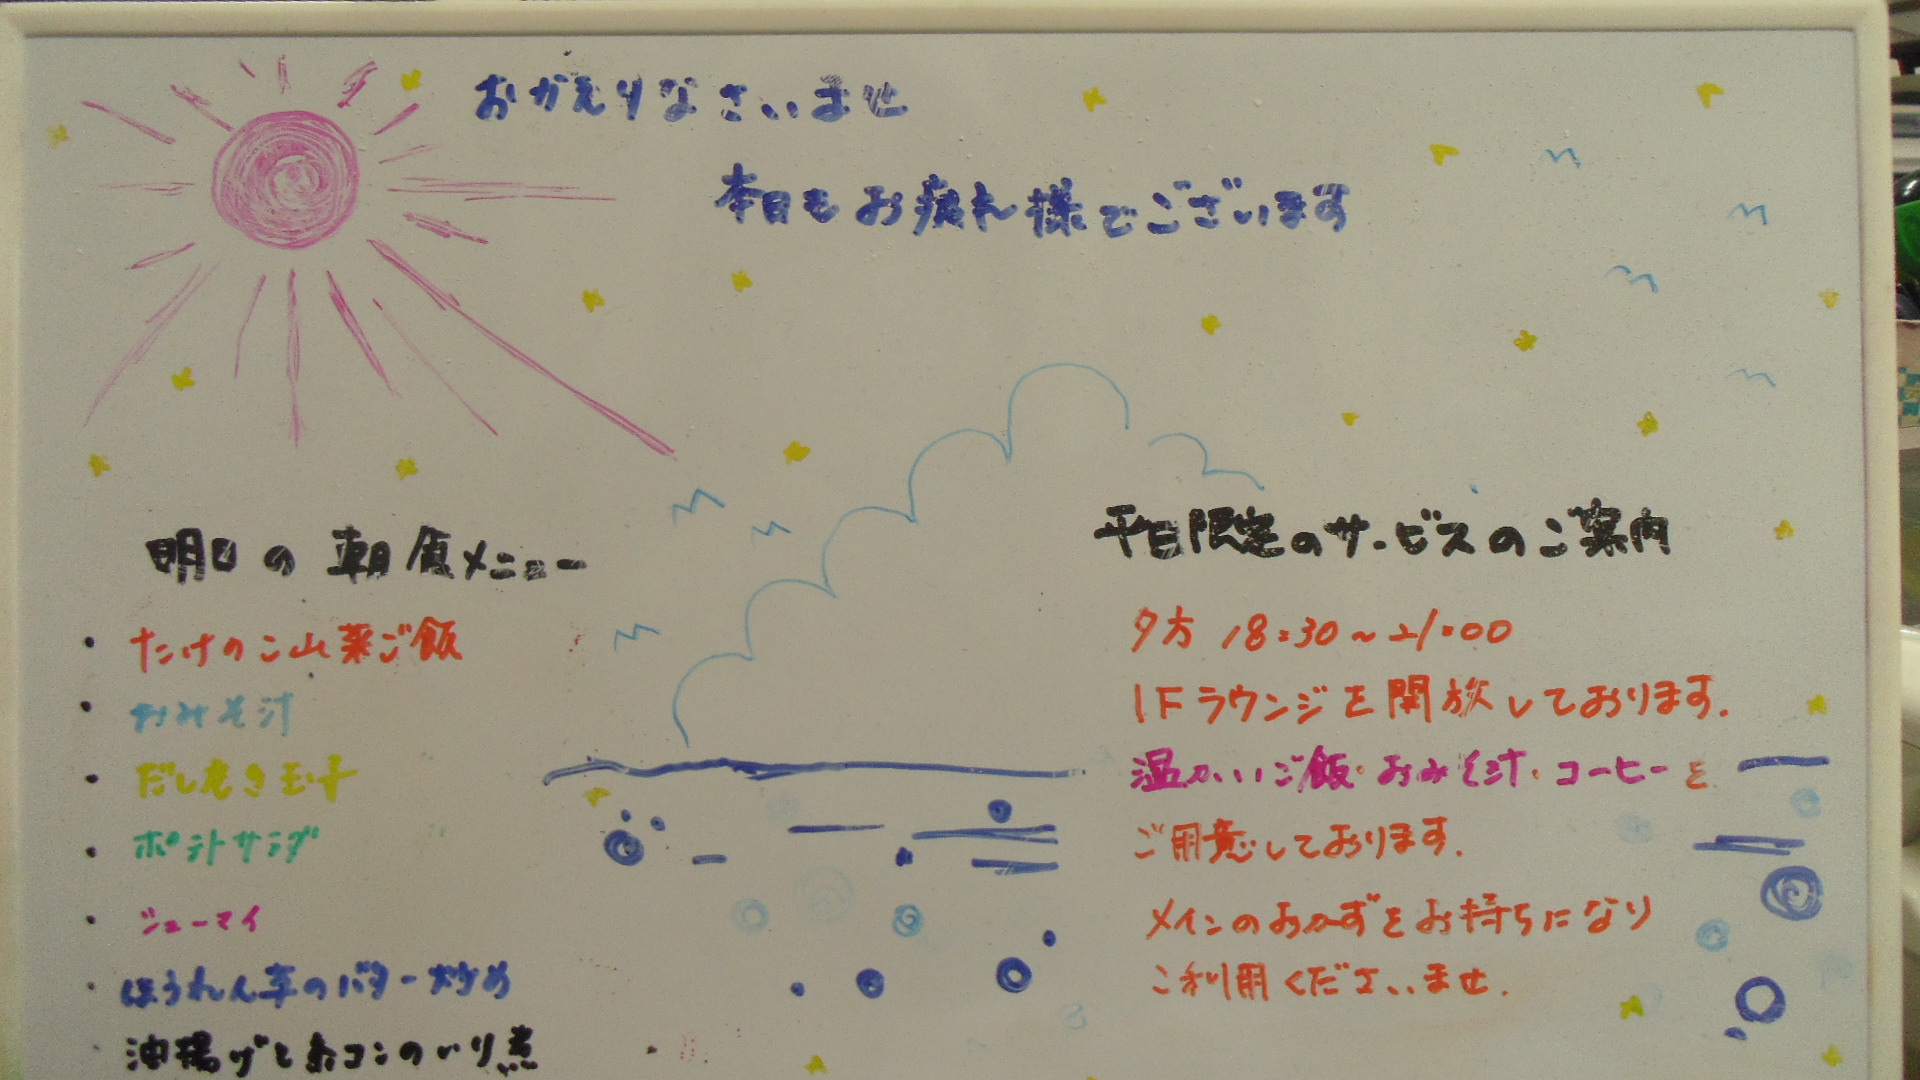 おかえりなさいませ
本日もお疲れ様でございます
明日の朝食メニュー
・たけのこ山菜ご飯
・おみそ汁
・だし巻き玉子
・ポテトサラダ
・シューマイ
・ほうれん草のバター炒め
・油揚げと糸コンのいり煮
平日限定のサービスのご案内
夕方 18:30~21:00
1Fラウンジを開放しております.
温かいご飯・おみそ汁・コーヒーを
ご用意しております.
メインのおかずをお持ちになり
ご利用くださいませ.